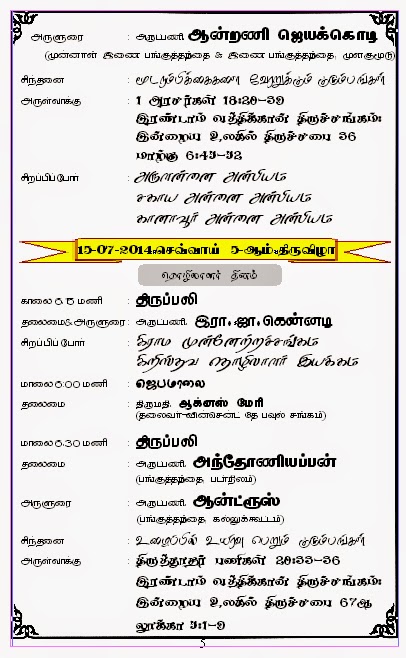 அருளுரை : அருட்பணி. ஆன்றணி ஜெயக்கொடி
(முன்னாள் இணை பங்குத்தந்தை & இணை பங்குத்தந்தை, முளகுமூடு)
சிந்தனை : மூடநம்பிக்கைகளை வேரறுக்கும் குடும்பங்கள்
அருள்வாக்கு : 1 அரசர்கள் 18:20-39
இரண்டாம் வத்திக்கான் திருச்சங்கம்:
இன்றைய உலகில் திருச்சபை 36
மாற்கு 6:45-52
சிறப்பிப்போர் : அருளானந்த அன்பியம்
சகாய அன்னை அன்பியம்
கானாவூர் அன்னை அன்பியம்
15-07-2014:செவ்வாய் 5-ஆம்:திருவிழா
தொழிலாளர் தினம்
காலை 6.15 மணி : திருப்பலி
தலைமை&அருளுரை : அருட்பணி. இரா. ஜா.கென்னடி
சிறப்பிப்போர் : கிராம முன்னேற்றச்சங்கம்
கிறிஸ்தவ தொழிலாளர் இயக்கம்
மாலை 6.00 மணி : ஜெபமாலை
தலைமை : திருமதி. ஆக்னஸ் மேரி
(தலைவர்-வின்சென்ட் தே பவுல் சங்கம்)
மாலை 6.30 மணி : திருப்பலி
தலைமை : அருட்பணி. அந்தோணியப்பன்
(பங்குத்தந்தை, படர்நிலம்)
அருளுரை : அருட்பணி. ஆன்ட்ரூஸ்
(பங்குத்தந்தை, கல்லுக்கூட்டம்)
சிந்தனை : உழைப்பில் உயர்வு பெறும் குடும்பங்கள்
அருள்வாக்கு : திருத்தூதர் பணிகள் 20:33-36
இரண்டாம் வத்திக்கான் திருச்சங்கம்:
இன்றைய உலகில் திருச்சபை 67ஆ
லூக்கா 5:1-9
5